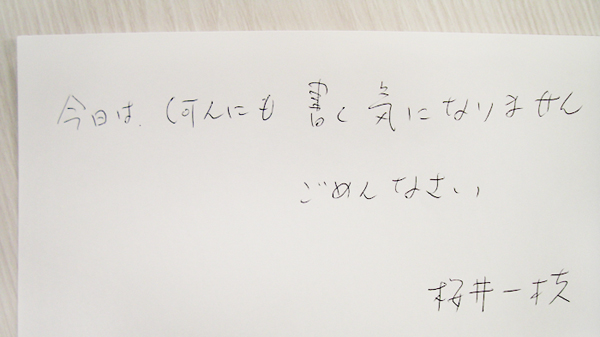 今日は、何んにも書く気になりません
ごめんなさい
桜井一枝